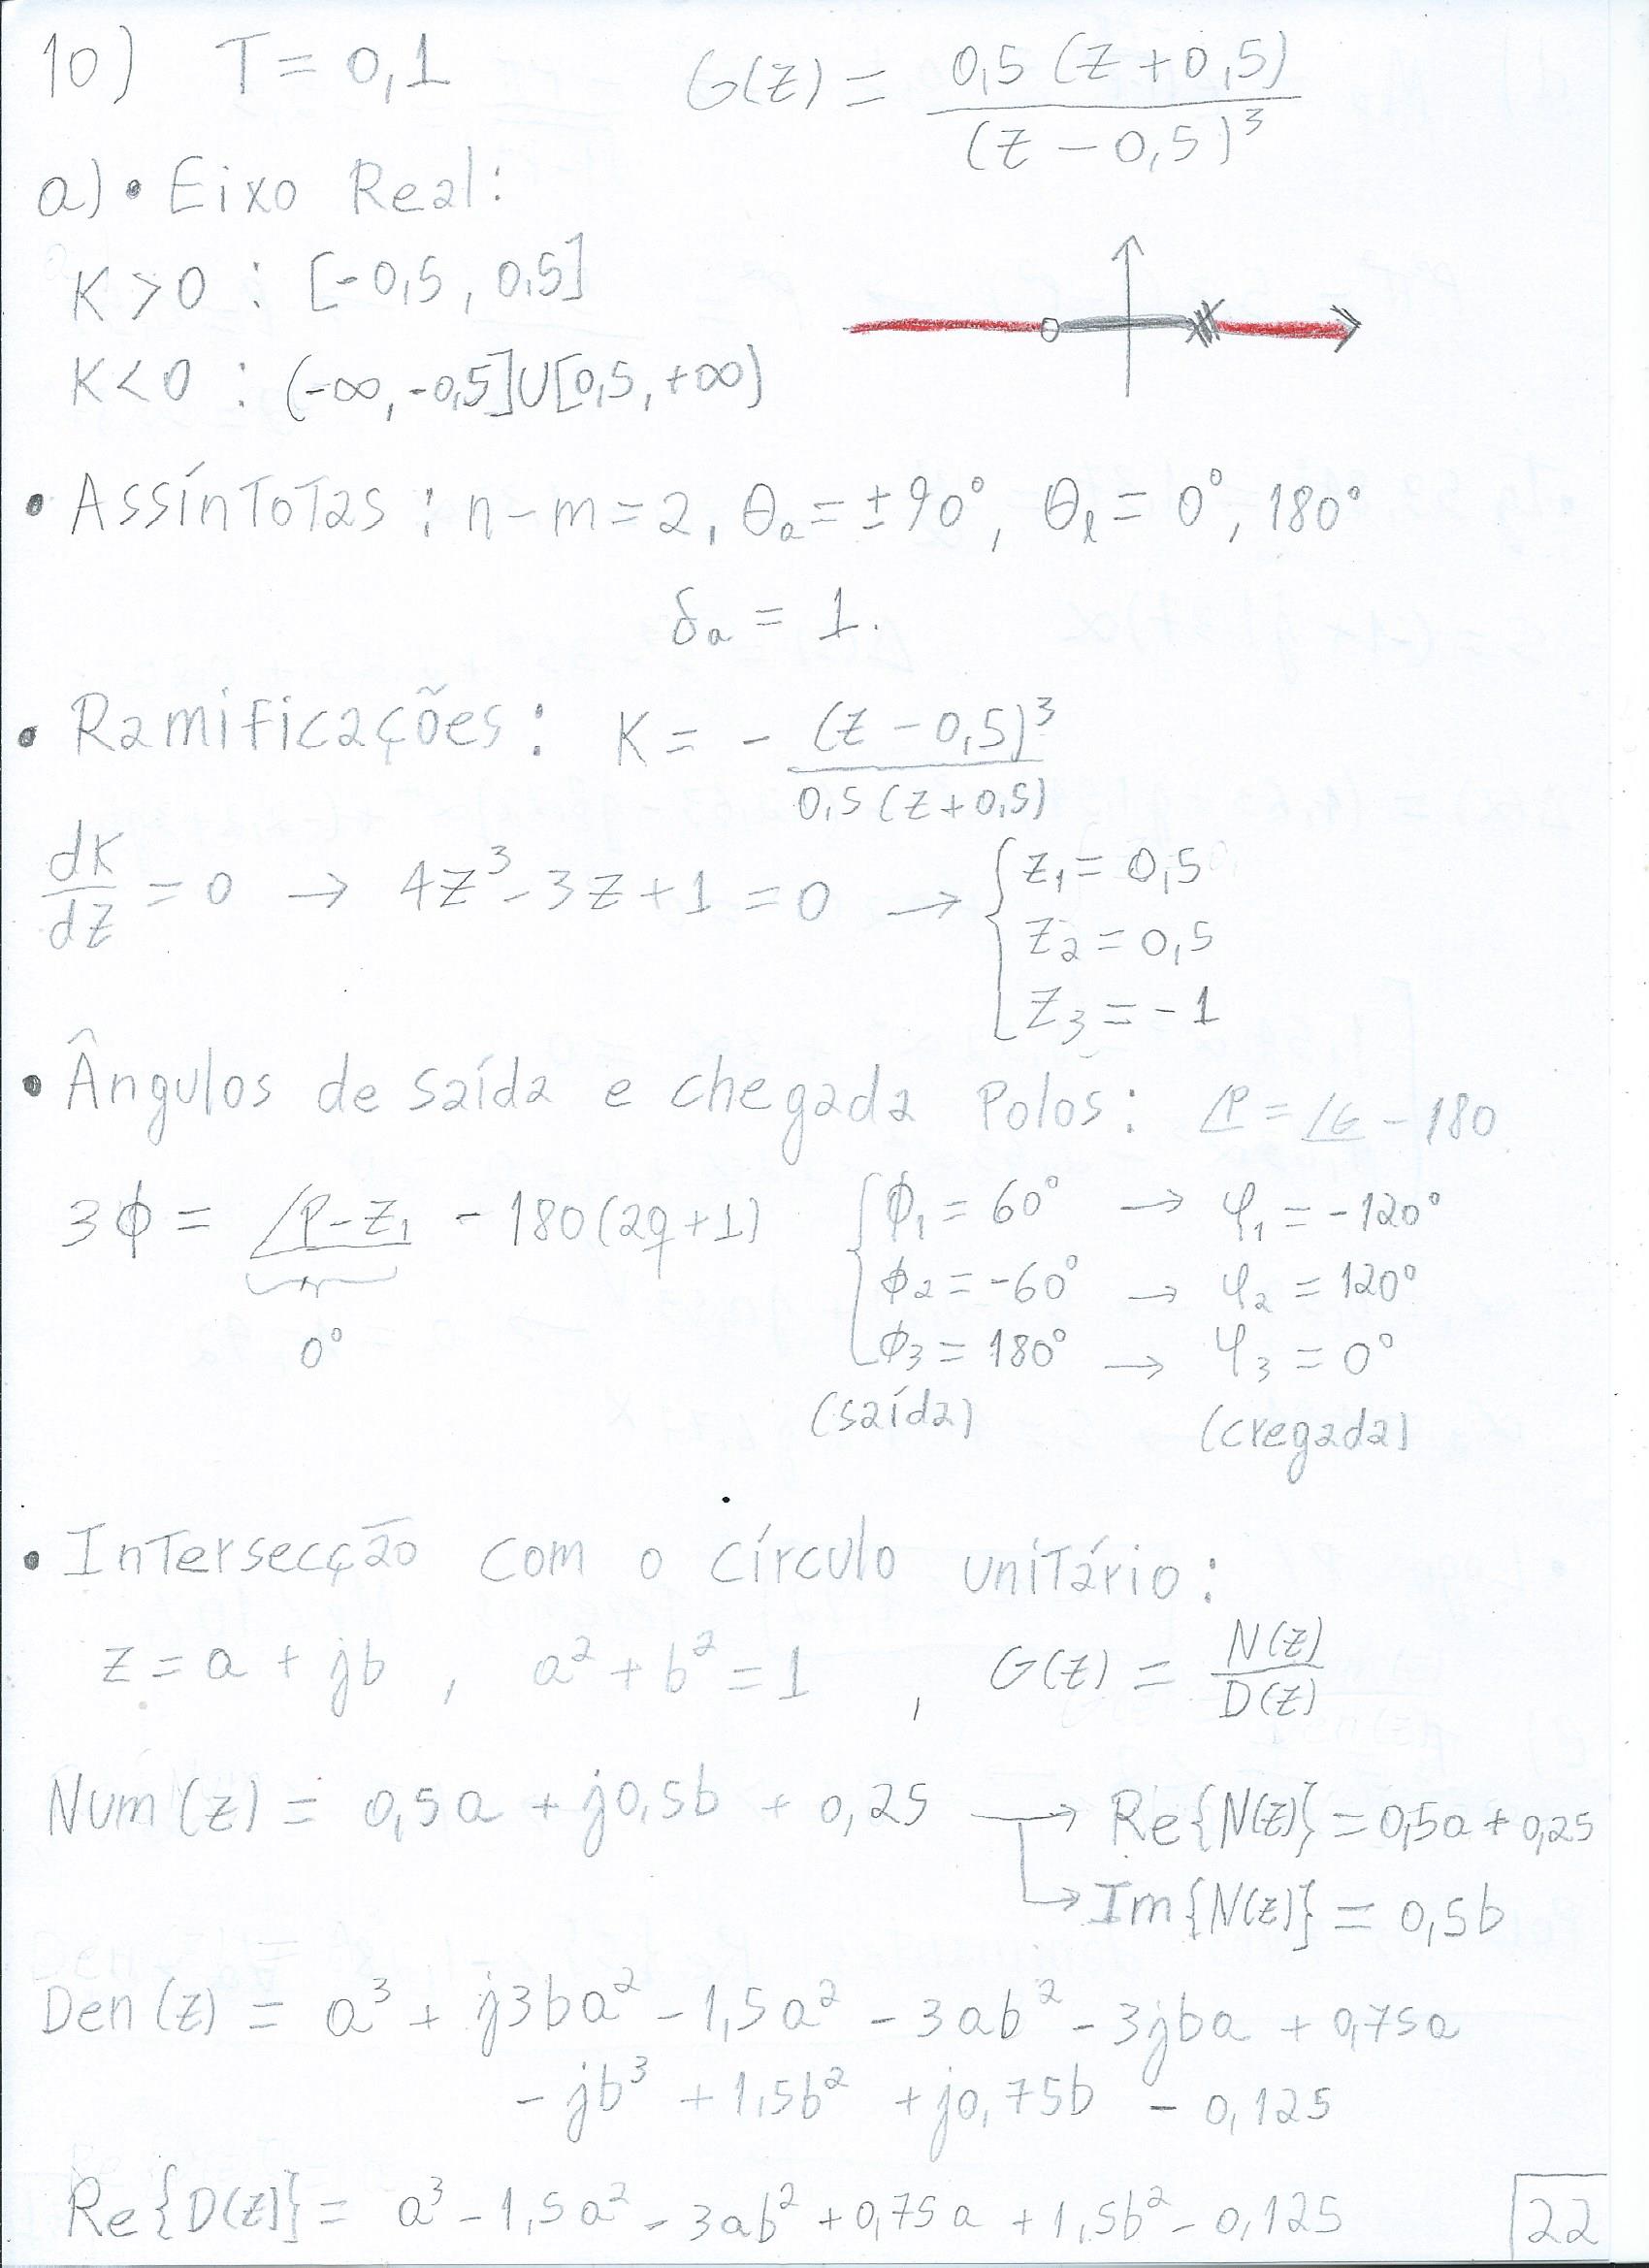 10) T = 0,1 G(z) = 0,5 (z + 0,5) / (z - 0,5)³
a) • Eixo Real:
K > 0 : [-0,5 , 0,5]
K < 0 : (-∞, -0,5]U[0,5, +∞)
• Assíntotas : n - m = 2, θa = ±90°, θl = 0°, 180°
δa = 1.
• Ramificações : K = - (z - 0,5)³ / 0,5 (z + 0,5)
dK/dz = 0 → 4z³ - 3z + 1 = 0 → { z₁ = 0,5
z₂ = 0,5
z₃ = -1
• Ângulos de saída e chegada Polos : ∠P = ∠G - 180
3ϕ = ∠P-z₁ - 180(2q+1) { ϕ₁ = 60° → φ₁ = -120°
ϕ₂ = -60° → φ₂ = 120°
0° ϕ₃ = 180° → φ₃ = 0°
(saída) (cregada)
• Intersecção com o círculo unitário :
z = a + jb , a² + b² = 1 , G(z) = N(z)/D(z)
Num (z) = 0,5a + j0,5b + 0,25 → Re{N(z)} = 0,5a + 0,25
→ Im{N(z)} = 0,5b
Den (z) = a³ + j3ba² - 1,5a² - 3ab² - 3jba + 0,75a
- jb³ + 1,5b² + j0,75b - 0,125
Re{D(z)} = a³ - 1,5a² - 3ab² + 0,75a + 1,5b² - 0,125
22